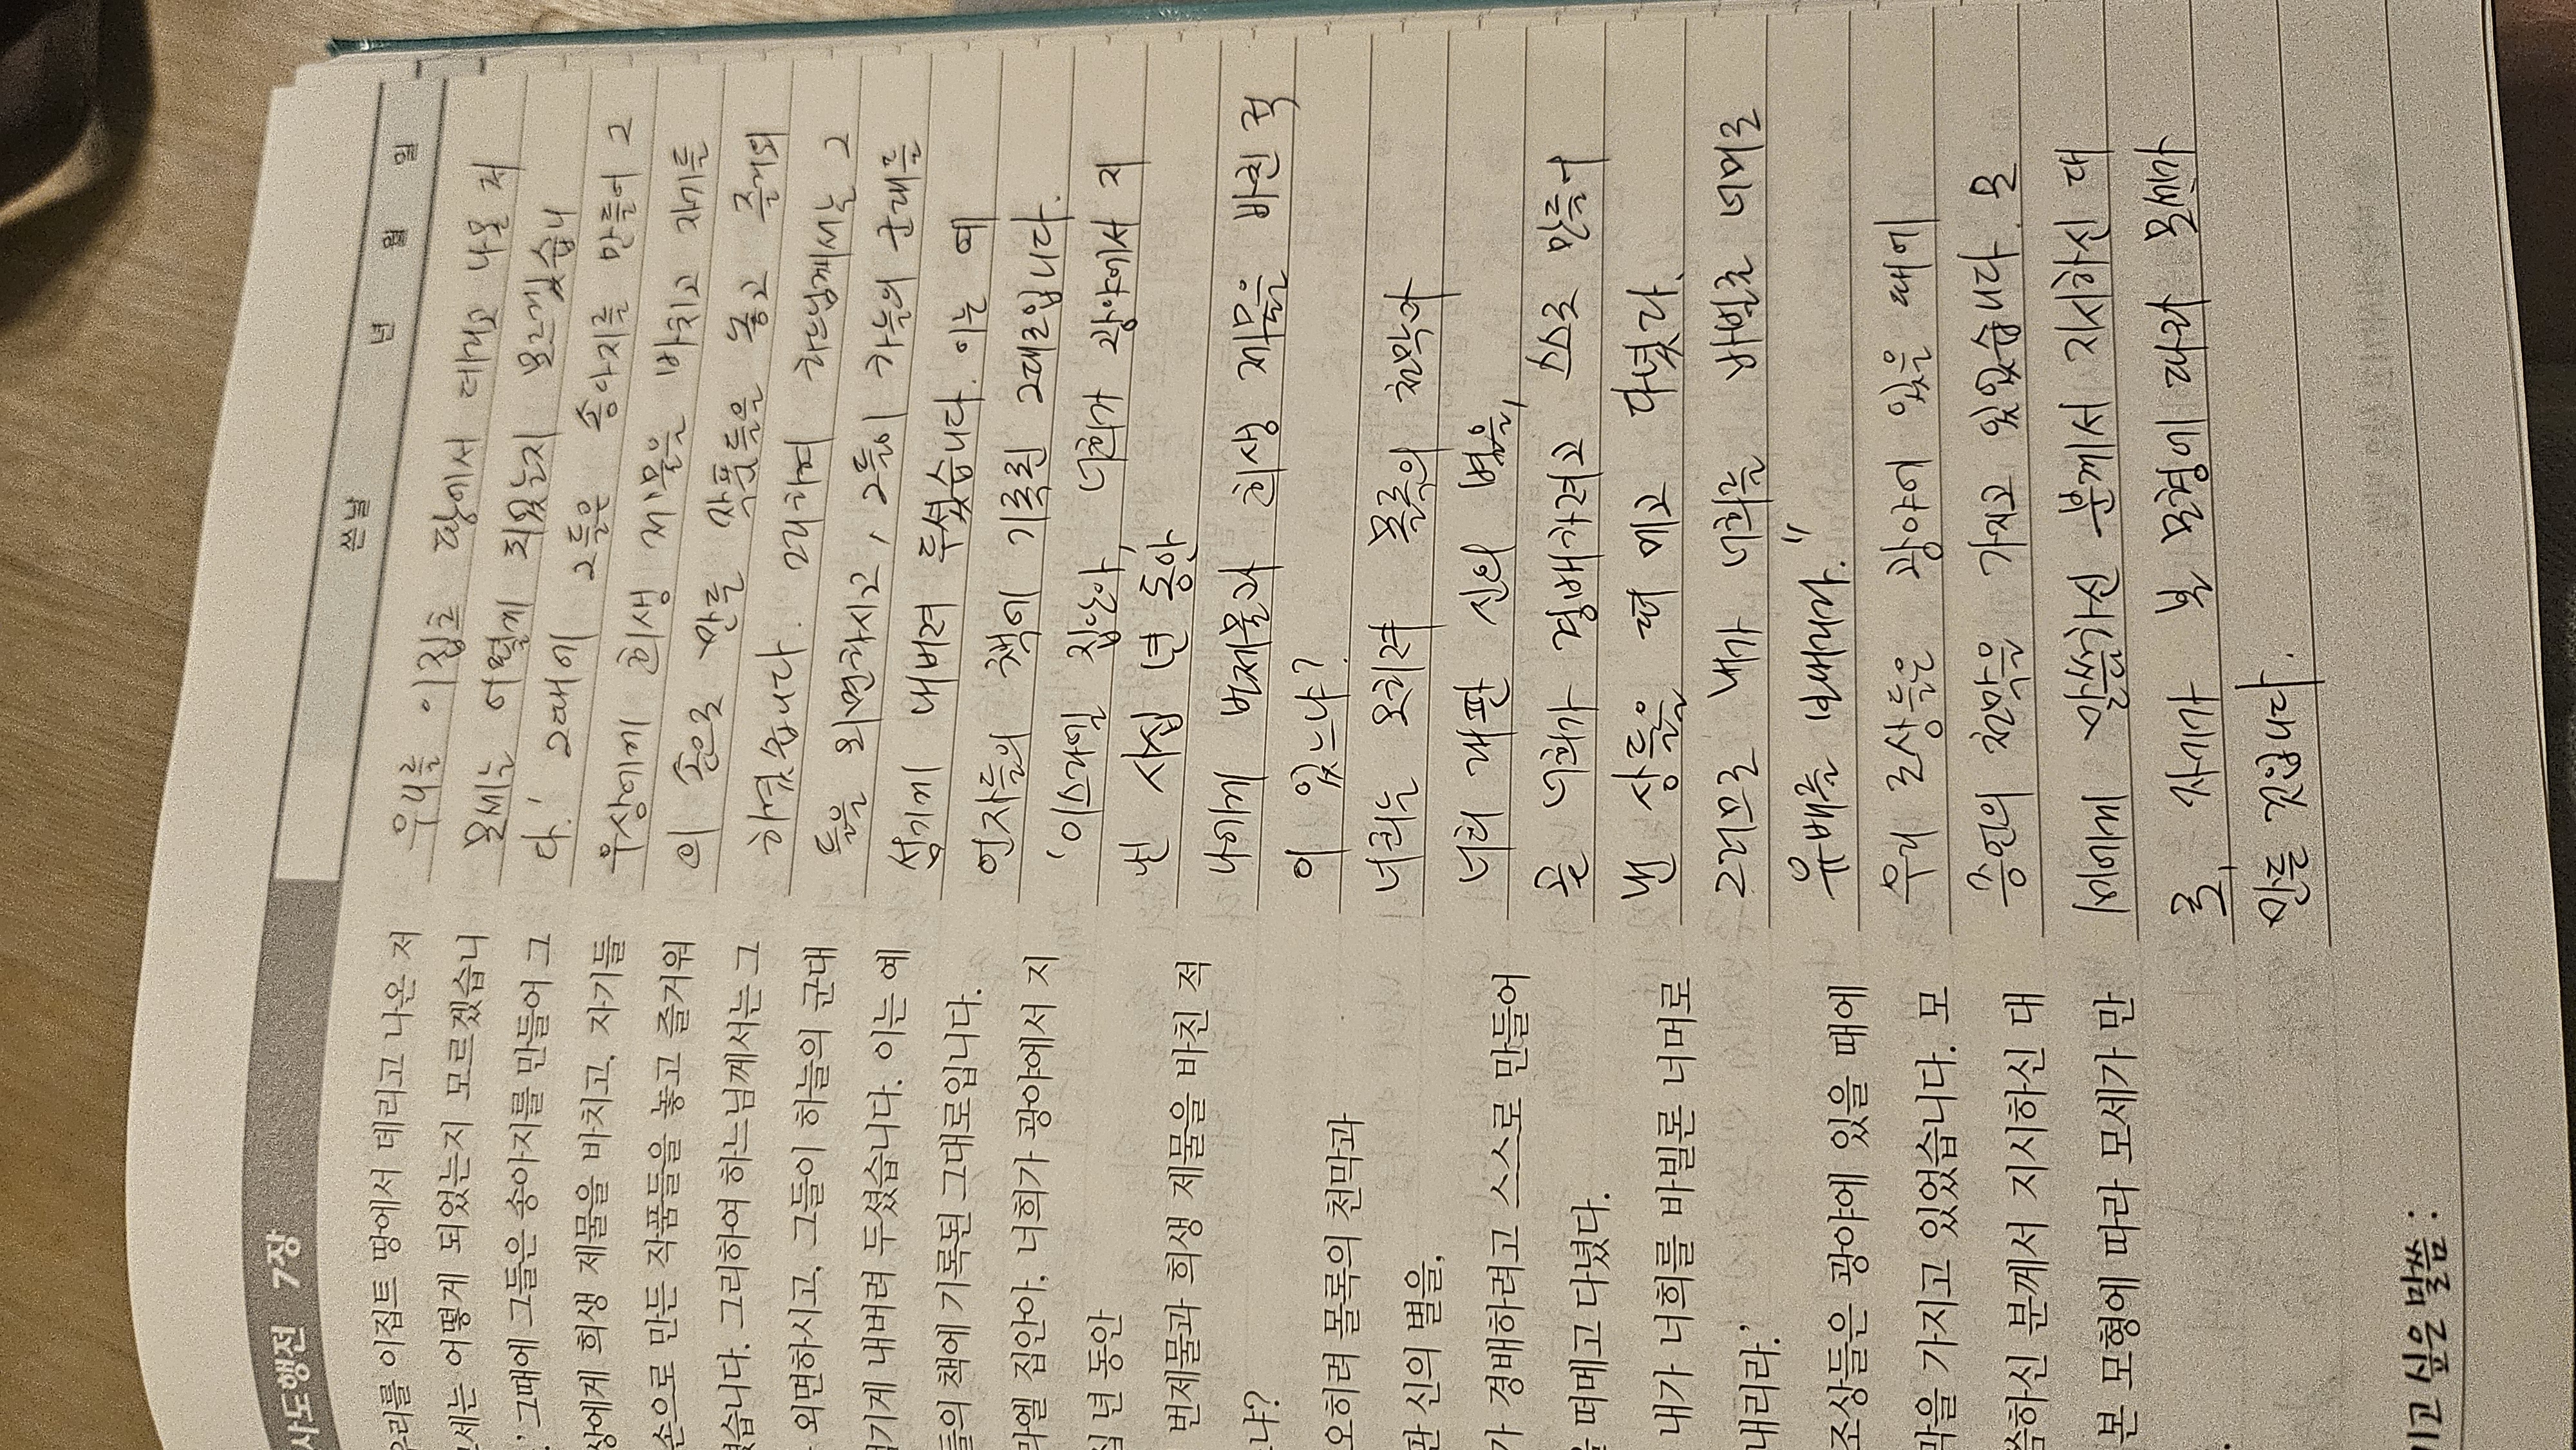 사도행전 7장
우리를 이집트 땅에서 데리고 나온 저
모세는 어떻게 되었는지 모르겠습니
.' 그때에 그들은 송아지를 만들어 그
상에게 희생 제물을 바치고, 자기들
손으로 만든 작품들을 놓고 즐거워
했습니다. 그리하여 하느님께서는 그
외면하시고, 그들이 하늘의 군대
섬기게 내버려 두셨습니다. 이는 예
들의 책에 기록된 그대로입니다.
라엘 집안아, 너희가 광야에서 지
십 년 동안
번제물과 희생 제물을 바친 적
느냐?
오히려 몰록의 천막과
판 신의 별을,
가 경배하려고 스스로 만들어
을 떠메고 다녔다.
내가 너희를 바빌론 너머로
내리라.'
조상들은 광야에 있을 때에
막을 가지고 있었습니다. 모
씀하신 분께서 지시하신 대
본 모형에 따라 모세가 만
.
기고 싶은 말씀 :
쓴날 년 월 일
우리를 이집트 땅에서 데리고 나온 저
모세는 어떻게 되었는지 모르겠습니
다.' 그때에 그들은 송아지를 만들어 그
우상에게 희생 제물을 바치고 자기들
의 손으로 만든 작품들을 놓고 즐거워
하였습니다. 그리하여 하느님께서는 그
들을 외면하시고, 그들이 하늘의 군대를
섬기게 내버려 두셨습니다. 이는 예
언자들의 책에 기록된 그대로입니다.
'이스라엘 집안아, 너희가 광야에서 지
낸 사십 년 동안
나에게 번제물과 희생 제물을 바친 적
이 있느냐?
너희는 오히려 몰록의 천막과
너희 래판 신의 별을,
곧 너희가 경배하려고 스스로 만들어
낸 상들을 떠 메고 다녔다.
그러므로 내가 너희를 바빌론 너머로
유배를 보내리라."
우리 조상들은 광야에 있을 때에
증언의 천막을 가지고 있었습니다. 모
세에게 말씀하신 분께서 지시하신 대
로, 자세가 본 모형에 따라 모세가
만든 것입니다.